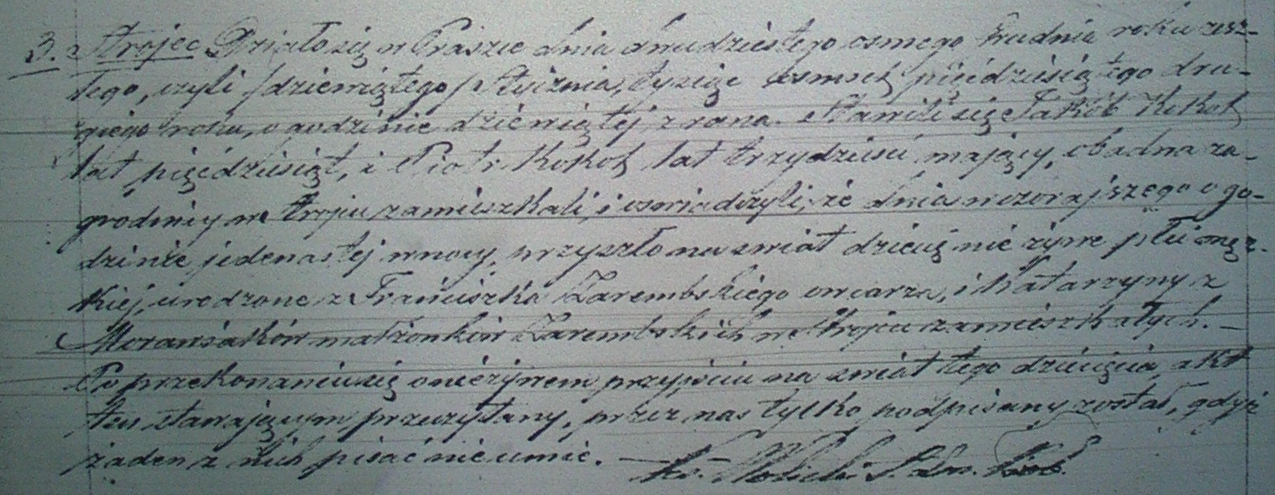 3. Strojec Działo się w Praszce dnia dwudziestego osmego Grudnia roku zesz-
łego, czyli /dziewiątego/ Stycznia, tysiąc osmset pięćdziesiątego dru-
giego roku, o godzinie dziewiątej z rana. Stawili się Jakób Kokot
lat pięćdziesiąt, i Piotr Kokot lat trzydzieści mający, obadwa za-
grodnicy we Stroju zamieszkali, i oswiadczyli, że dnia wczorajszego o go-
dzinie jedenastej w nocy, przyszło na swiat dziecię nie żywe płci męz-
kiej, urodzone z Franciszka Zarembskiego owcarza, i Katarzyny z
małżonków Zarembskich we Stroju zamieszkałych. —
Po przekonaniu się o nieżywem przyjściu na swiat tego dziecięcia, akt
ten stawającym przeczytany, przez nas tylko podpisany został, gdyż
żaden z nich pisać nie umie. —